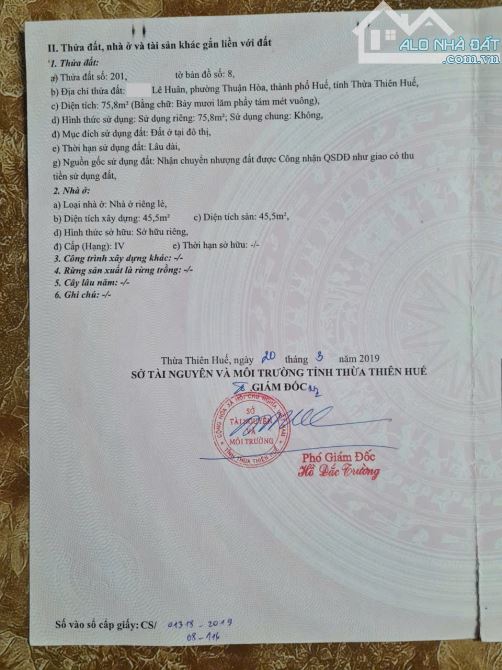 ALO NHÀ ĐẤT
II. Thửa đất, nhà ở và tài sản khác gắn liền với đất
1. Thửa đất:
a) Thửa đất số: 201, tờ bản đồ số: 8,
b) Địa chỉ thửa đất: Lê Huân, phường Thuận Hòa, thành phố Huế, tỉnh Thừa Thiên Huế,
c) Diện tích: 75,8m² (Bằng chữ: Bảy mươi lăm phẩy tám mét vuông),
d) Hình thức sử dụng: Sử dụng riêng: 75,8m²; Sử dụng chung: Không,
đ) Mục đích sử dụng đất: Đất ở tại đô thị,
e) Thời hạn sử dụng đất: Lâu dài,
g) Nguồn gốc sử dụng đất: Nhận chuyển nhượng đất được Công nhận QSDĐ như giao có thu
tiền sử dụng đất,
2. Nhà ở:
a) Loại nhà ở: Nhà ở riêng lẻ,
b) Diện tích xây dựng: 45,5m² c) Diện tích sàn: 45,5m²,
d) Hình thức sở hữu: Sở hữu riêng,
đ) Cấp (Hạng): IV e) Thời hạn sở hữu: -/-
3. Công trình xây dựng khác: -/-
4. Rừng sản xuất là rừng trồng: -/-
5. Cây lâu năm: -/-
6. Ghi chú: -/-
Thừa Thiên Huế, ngày 20 tháng 3 năm 2019
SỞ TÀI NGUYÊN VÀ MÔI TRƯỜNG TỈNH THỪA THIÊN HUẾ
GIÁM ĐỐC
SỞ
TÀI NGUYÊN
VÀ
MÔI TRƯỜNG
TỈNH THỪA THIÊN HUẾ
Phó Giám Đốc
Hồ Đắc Trường
Số vào sổ cấp giấy: CS/ 01318 - 2019
08 - 114